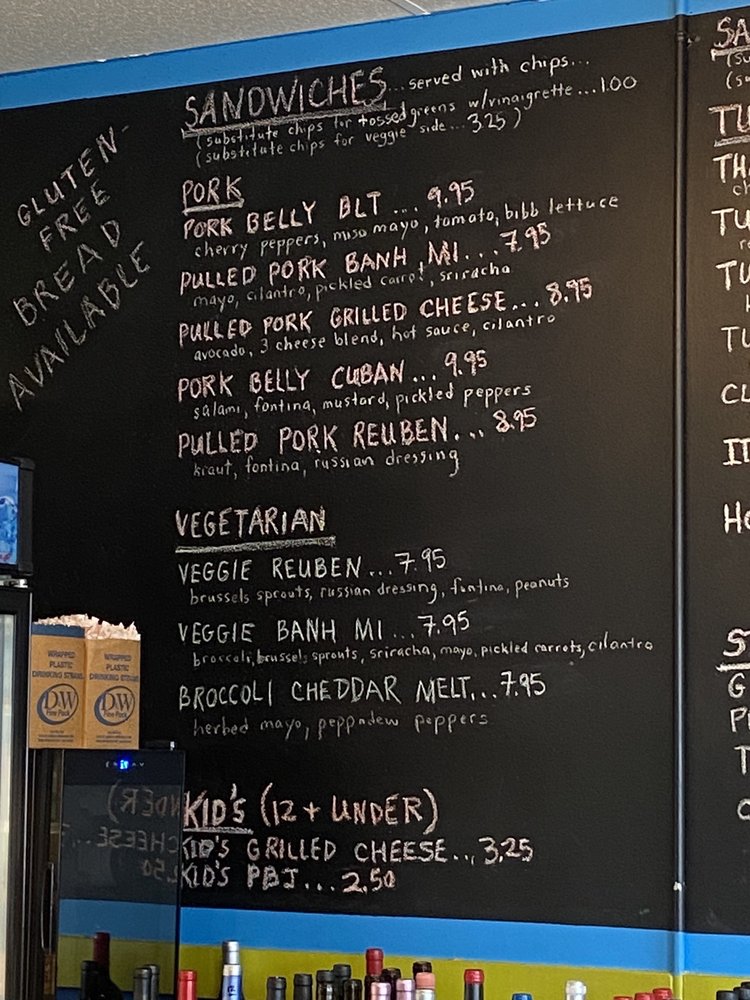 GLUTEN-
FREE
BREAD
AVAILABLE
SANDWICHES...served with chips...
(substitute chips for tossed greens w/vinaigrette...1.00
(substitute chips for veggie side...3.25)
PORK
PORK BELLY BLT...9.95
cherry peppers, miso mayo, tomato, bibb lettuce
PULLED PORK BANH MI...7.95
mayo, cilantro, pickled carrot, sriracha
PULLED PORK GRILLED CHEESE...8.95
avocado, 3 cheese blend, hot sauce, cilantro
PORK BELLY CUBAN...9.95
salami, fontina, mustard, pickled peppers
PULLED PORK REUBEN...8.95
kraut, fontina, russian dressing
VEGETARIAN
VEGGIE REUBEN...7.95
brussels sprouts, russian dressing, fontina, peanuts
VEGGIE BANH MI...7.95
broccoli, brussels sprouts, sriracha, mayo, pickled carrots, cilantro
BROCCOLI CHEDDAR MELT...7.95
herbed mayo, peppadew peppers
KID'S (12 + UNDER)
KID'S GRILLED CHEESE...3.25
KID'S PBJ...2.50
WRAPPED
PLASTIC
DRINKING STRAWS
D&W
Fine Pack
WRAPPED
PLASTIC
DRINKING STRAWS
D&W
Fine Pack